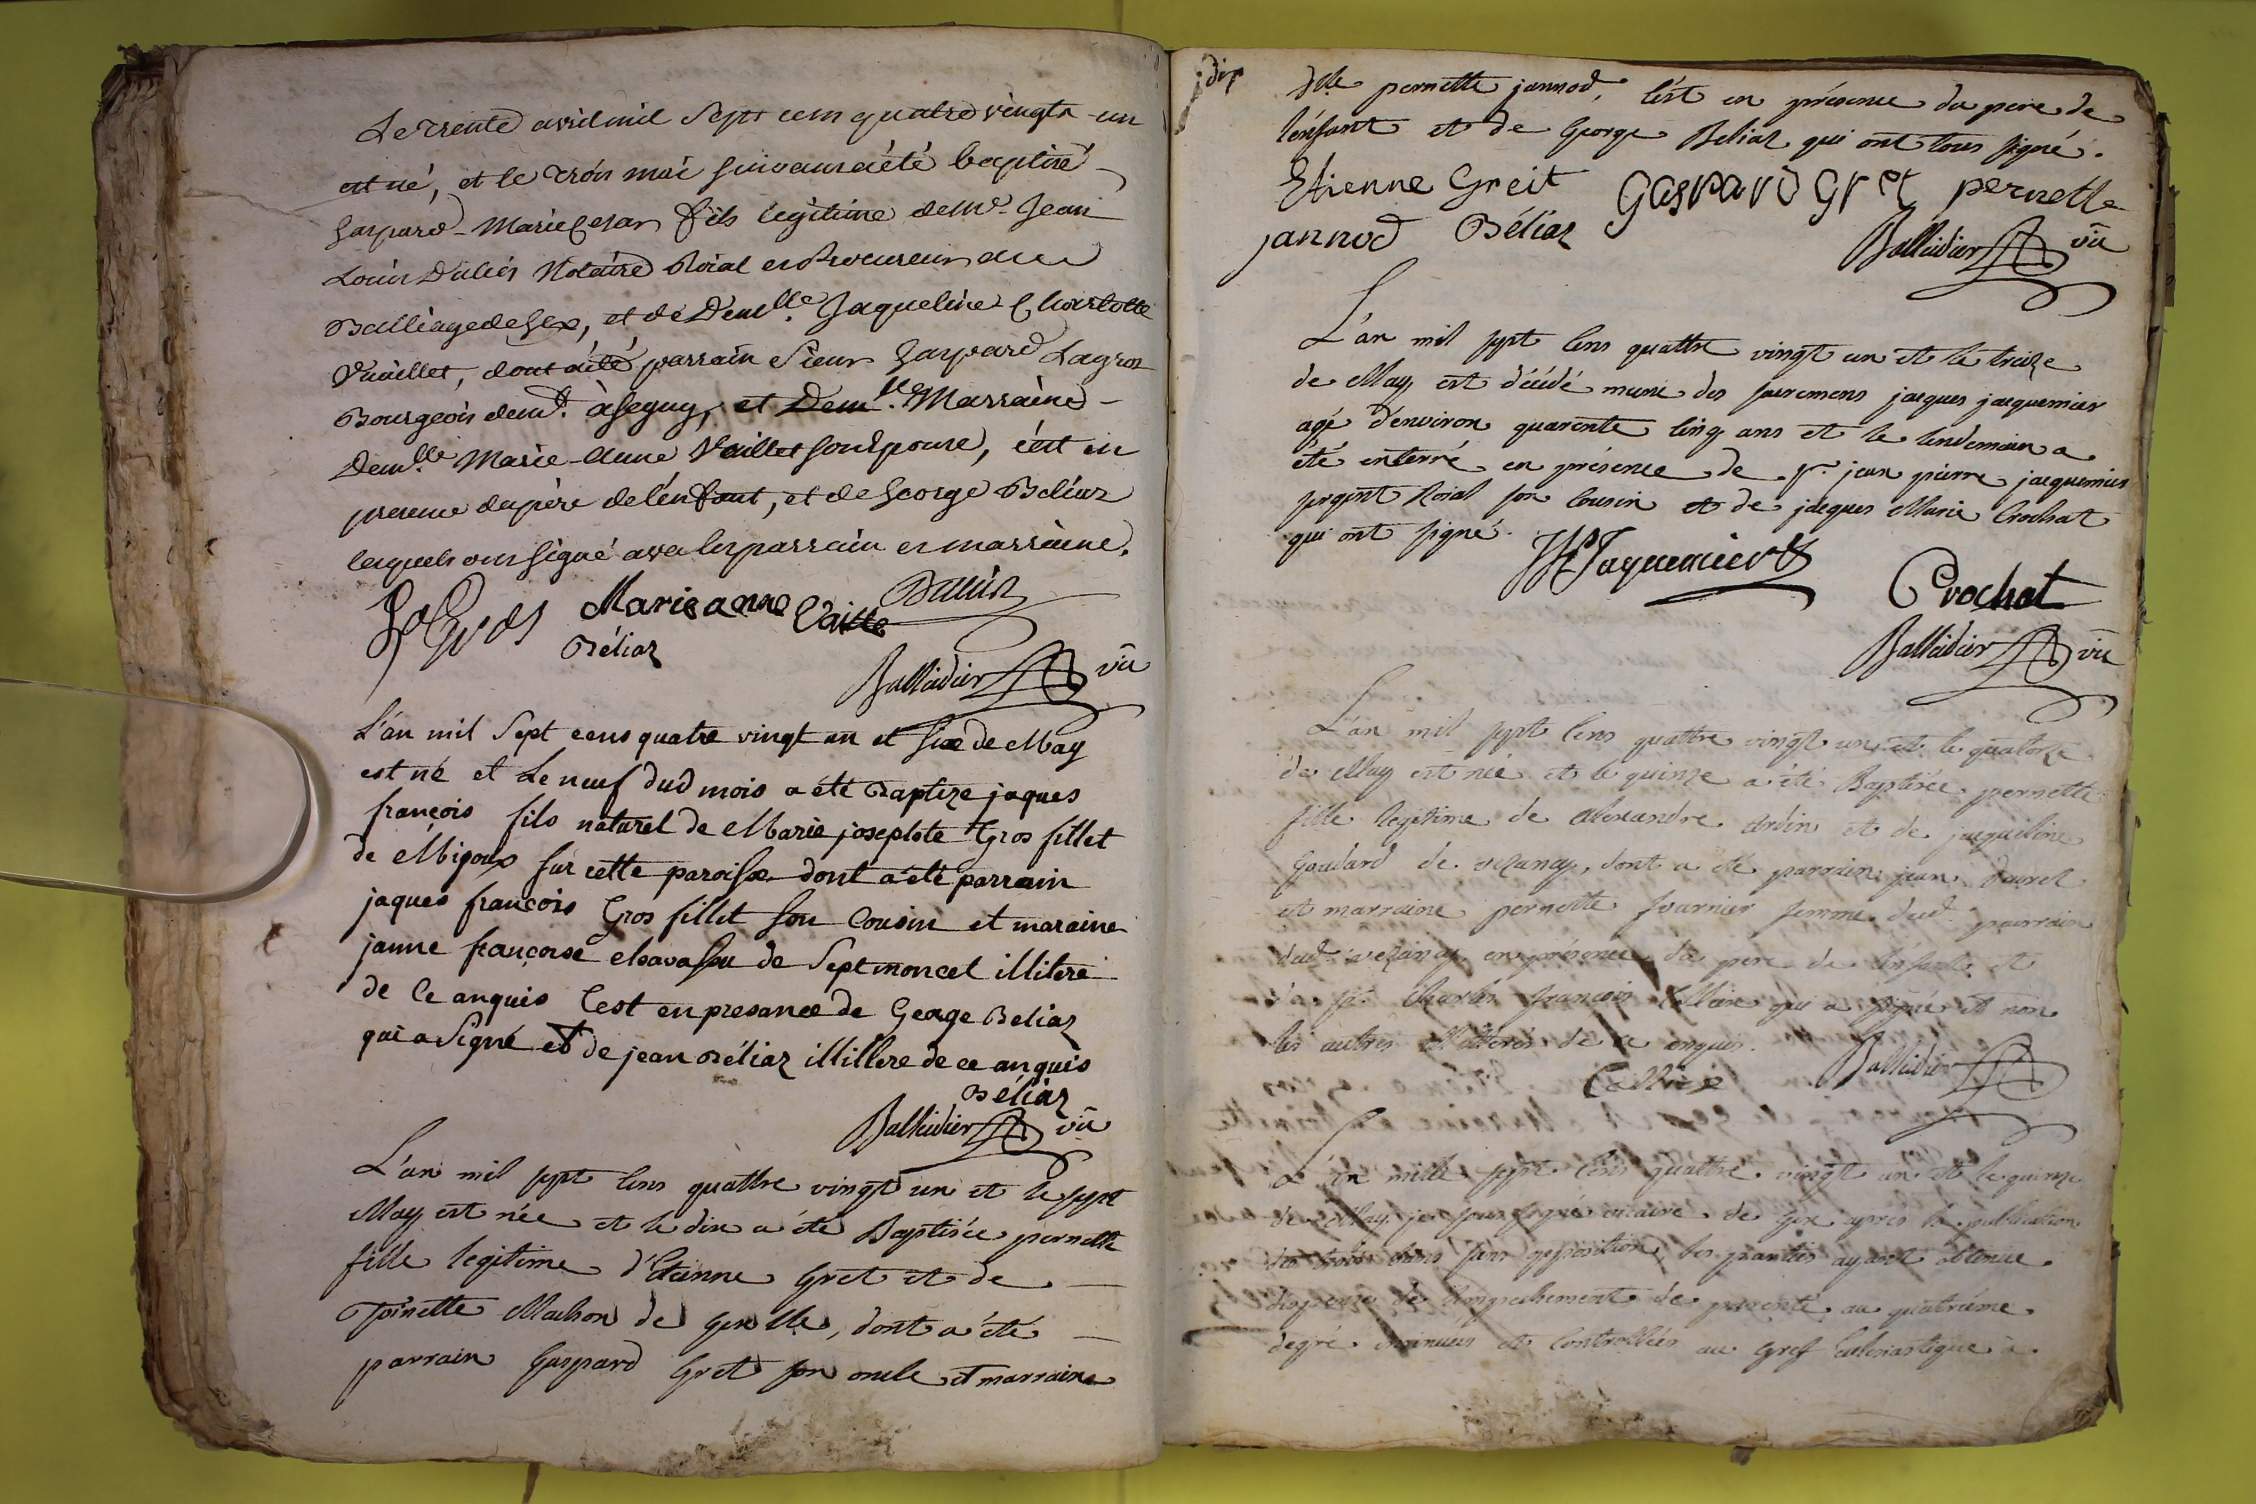 Le trente avril mil Sept cens quatre vingts un
est né, et le trois mai suivant a été baptisé
Gaspard-Marie Cesar fils legitime de Me. Jean
Louis Dalèir Notaire Roial et Procureur au
Bailliage de Gex, et de Demlle. Jaqueline Charlotte
Vuaillet, dont a été parrain Sieur Gaspard Lagros
Bourgeois demt. à Segny, et Marraine
Demlle Marie-Anne Vuaillet son Epouse, c'est en
presence du père de l'enfant, et de George Béliaz
lesquels ont signé avec les parrain et marraine.
Marie anne Vaillet
Béliaz
Balleidier vic
L'an mil Sept cens quatre vingt un et six de May
est né et Le neuf dud mois a été Baptize jaques
françois fils naturel de Marie josephte Gros fillet
de Mijoux sur cette paroisse dont a été parrain
jaques françois Gros fillet son Cousin et maraine
janne françoise chavassu de Septmoncel illiteré
de Ce anquis C'est en presance de George Beliaz
qui a Signé et de jean Béliaz illillere de ce anquis
Béliaz
Balleidier vic
L'an mil sept cens quattre vingt un et le sept
May est née et le dix a été Baptisée pernette
fille legitime d'Etienne Gret et de
Toinette Machon de Gex la ville, dont a été
parrain Gaspard Gret son oncle et marraine
dlle pernette jannod, c'est en présence du pere de
l'enfant et de George Beliaz qui ont tous signé.
Etienne Greit Gaspard Gret pernette
jannod Béliaz
Balleidier vic
L'an mil sept cens quattre vingt un et le treize
de May est décédé muni des sacremens jacques jacquemier
agé d'environ quarente cinq ans et le lendemain a
été enterré en présence de Sr. jean pierre jacquemier
sergent Roial son Cousin et de jacques Marie Crochat
qui ont signé.
JP Jaquemier
Crochat
Balleidier vic
L'an mil sept cens quattre vingt un et le quatorze
de May est née et le quinze a été Baptisée pernette
fille legitime de Alexandre Ardin et de jacqueline
Goudard de vezancy, dont a été parrain jean
et marraine pernette fournier femme dud. parrain
dud vezancy en présence du pere de l'enfant et
de Sr. Charles françois Callixe qui a signé et non
les autres illitterés de ce enquis.
Callixe Balleidier
L'an mille sept cens quattre vingt un et le quinze
de May je soussigné vicaire de Gex apres la publication
des trois bans sans opposition, les parties ayant obtenu
dispense de l'empechement de parenté au quatrième
degré insinuées et controllées au Gref Eclesiastique à